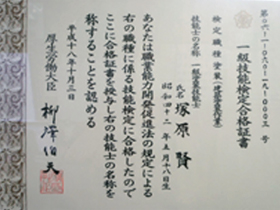 第〇六一-一〇六〇-一九-〇〇〇三号
一級技能検定合格証書
検定職種 塗装(建築塗装作業)
技能士の名称 一級塗装技能士
氏名 塚原 賢
昭和四十二年五月十八日生
あなたは職業能力開発促進法の規定による
右の職種に係る技能検定に合格したので
ここに合格証書を授与し右の技能士の名称を
称することを認める
平成十八年十月三日
厚生労働大臣 柳澤伯夫